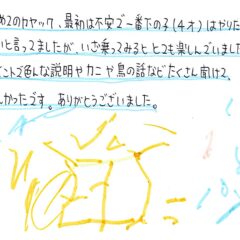 めてのカヤック、最初は不安で一番下の子(4才)はやりた
いと言ってましたが、いざ乗ってみるととても楽しんでいました
こんで色んな説明やカニや鳥の話などたくさん聞けて、
しかったです。ありがとうございました。